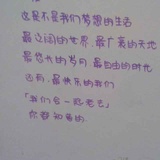 这是不是我们梦想的生活
最辽阔的世界.最广袤的天地
最悠长的岁月.最自由的时代
最快乐的我们
「我们会一起老去」
你要知道的.